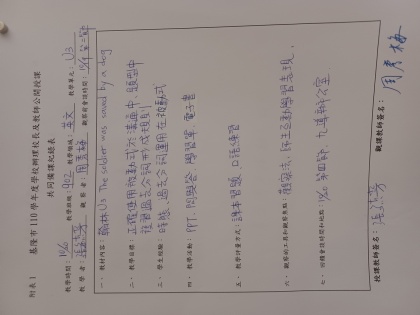 附表1
基隆市 110 學年度學校辦理校長及教師公開授課
共同備課紀錄表
教學時間：10/20 教學班級：902 教學領域：英文 教學單元：U3
教 學 者： 觀 察 者：周秀梅 觀察前會談時間：10/19 第二節
一、 教材內容：翰林U3 The soldier was saved by a dog
二、 教學目標：正確使用被動式於溝通中、題型中
複習過去分詞形成規則
三、 學生經驗：時態、過去分詞運用在被動式
四、 教學活動：PPT、問與答、學習單、電子書
五、 教學評量方式：課本習題、口語練習
六、 觀察的工具和觀察焦點：觀察法、師生互動學習表現、
七、 回饋會談時間和地點：10/20 第四節、九導辦公室
授課教師簽名： 觀課教師簽名：周秀梅